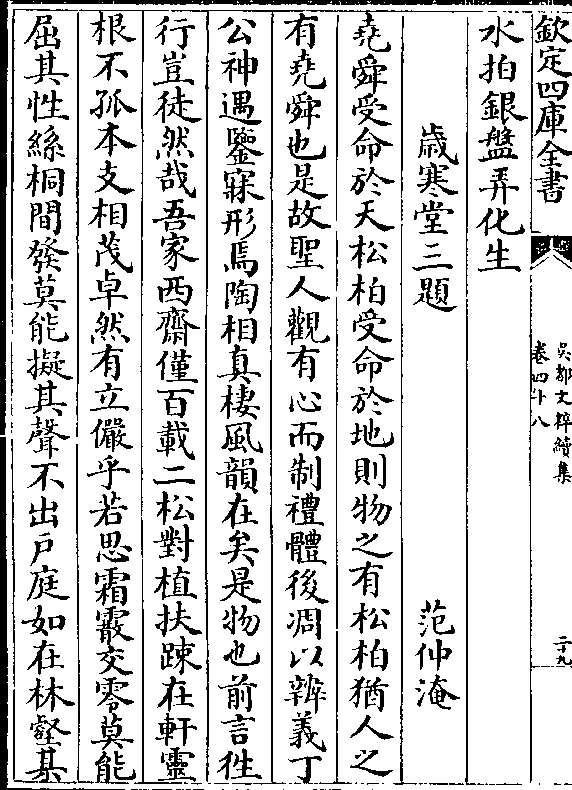 欽定四庫全書
吳都文粹續集
卷四十八
二十九
水拍銀盤弄化生
歲寒堂三題 范仲淹
堯舜受命於天松柏受命於地則物之有松柏猶人之
有堯舜也是故聖人觀有心而制禮體後凋以辨義丁
公神遇鑒寐形焉陶相真棲風韻在矣是物也前言徃
行豈徒然哉吾家西齋僅百載二松對植扶踈在軒靈
根不孤本支相茂卓然有立儼乎若思霜霰交零莫能
屈其性絲桐間發莫能擬其聲不出戸庭如在林壑某